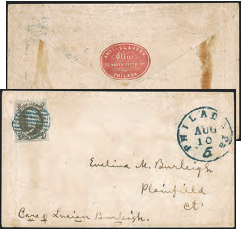 ANTI-SLAVERY
Office
PHILADA
PHILADA
AUG
10
Evelina M. Burleigh
Plainfield
Ct
Care of Lucian Burleigh.